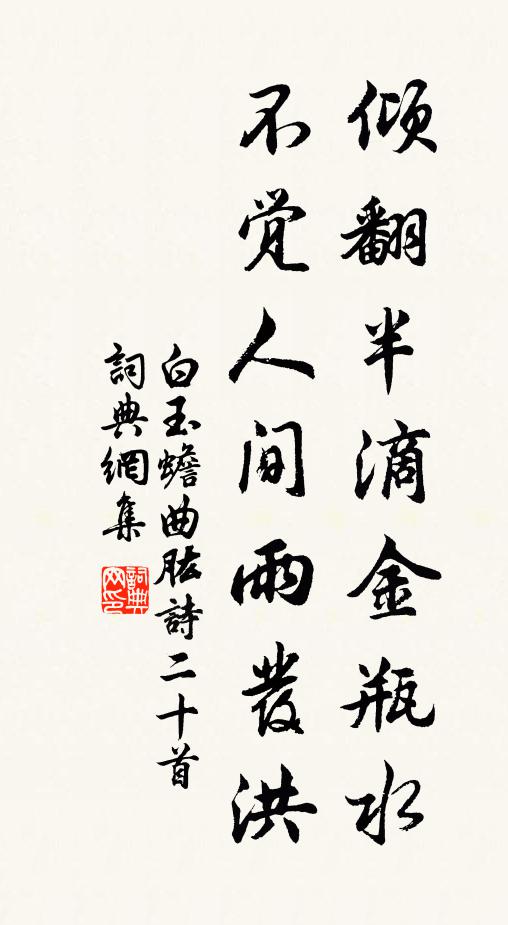 傾翻半滴金瓶水
不覺人間雨發洪
白玉蟾曲肱詩二十首
詞典網集
詞典網印